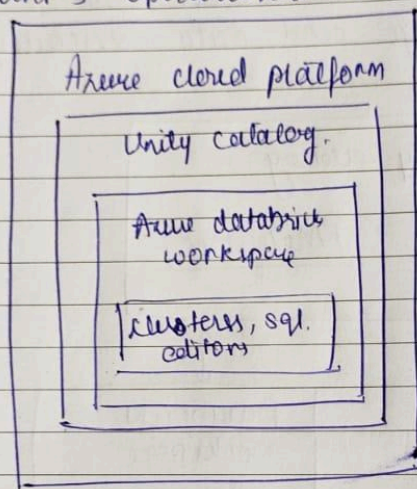 Azure cloud platform
Unity catalog.
Azure databricks
workspace
clusters, sql.
editors